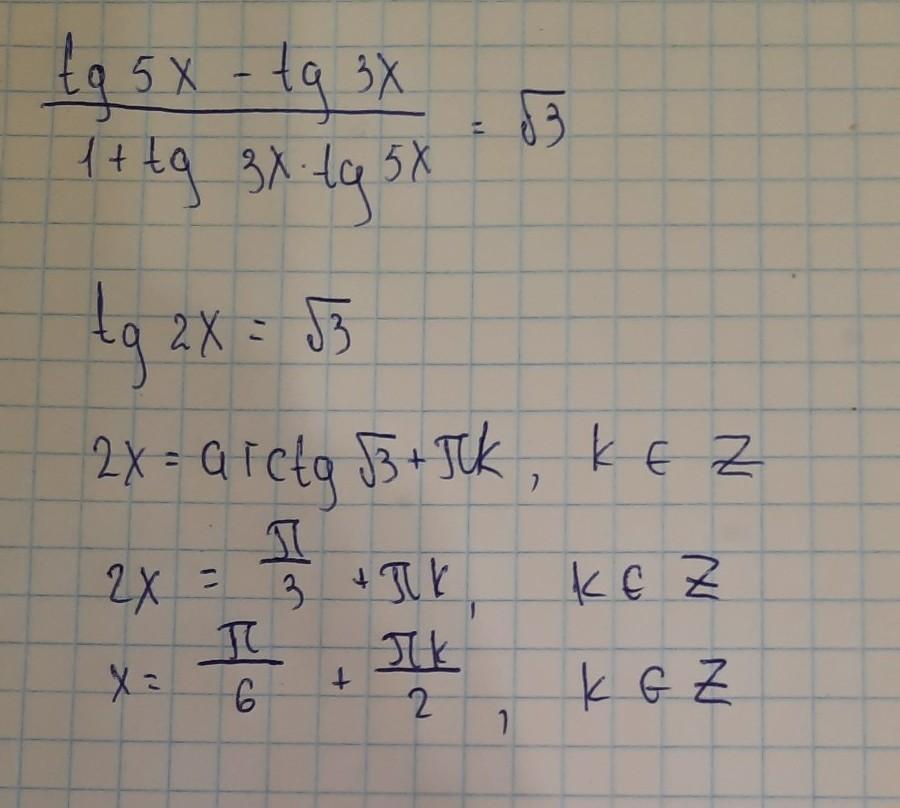 tg 5x - tg 3x
1 + tg 3x · tg 5x = √3
tg 2x = √3
2x = arctg √3 + πk, k ∈ Z
2x = π/3 + πk, k ∈ Z
x = π/6 + πk/2, k ∈ Z